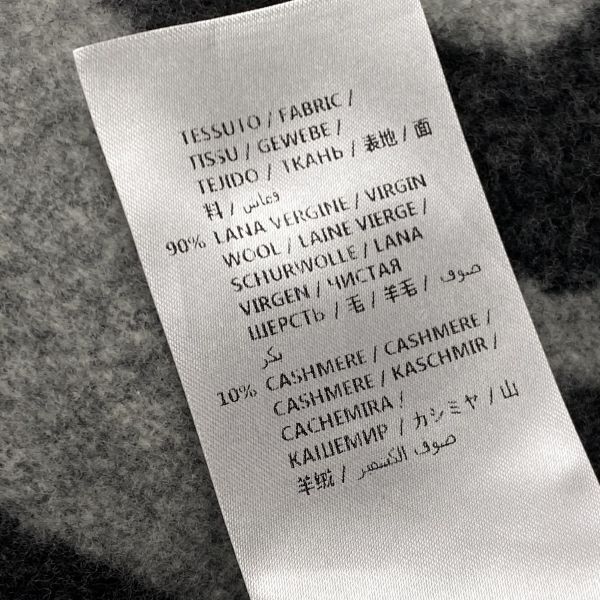 TESSUTO / FABRIC /
TISSU / GEWEBE /
TEJIDO / ТКАНЬ / 表地 / 面
料 / قماش
90% LANA VERGINE / VIRGIN
WOOL / LAINE VIERGE /
SCHURWOLLE / LANA
VIRGEN / ЧИСТАЯ
ШЕРСТЬ / 毛 / 羊毛 / صوف
بكر
10% CASHMERE / CASHMERE /
CASHMERE / KASCHMIR /
CACHEMIRA /
КАШЕМИР / カシミヤ / 山
羊绒 / صوف الكشمير